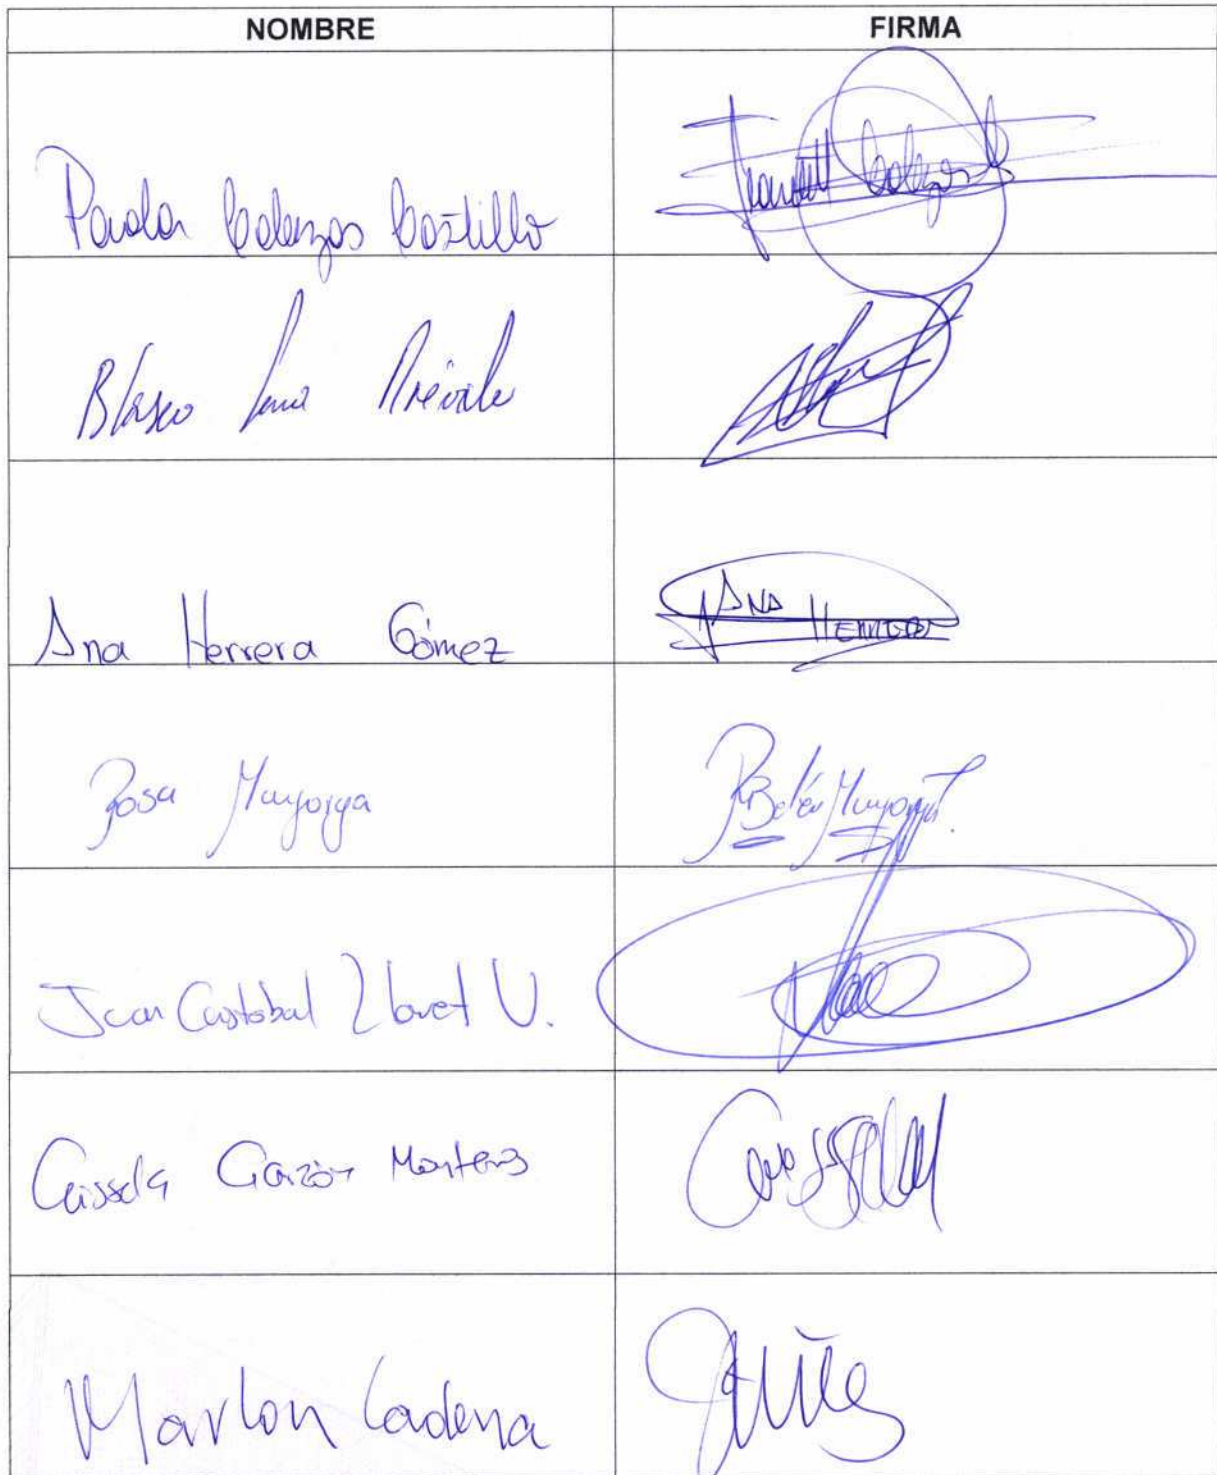 NOMBRE FIRMA
Paola Cabezas Castillo
Blasco Luna Arévalo
Ana Herrera Gómez Ana Herrera
Rosa Mayorga RBelén Mayorga
Juan Cristobal Lloret V.
Gissela Garzón Monteros
Marlon Cadena